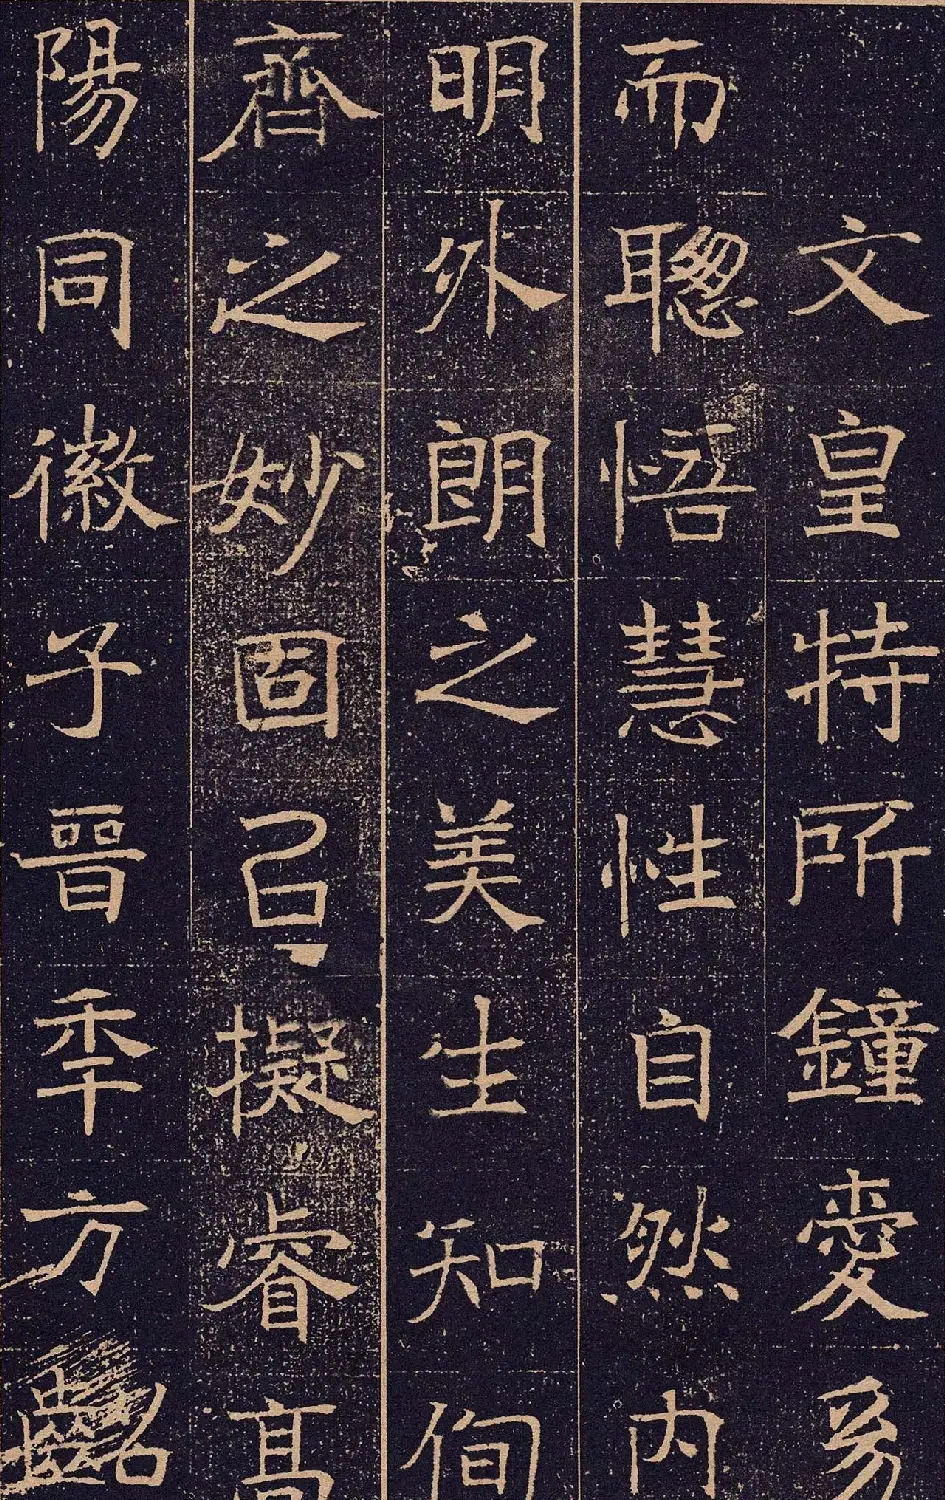 文皇特所鐘愛
而聰悟慧性自然内
明外朗之美生知侚
齊之妙固㠯擬睿高
陽同徽子晉季方齠